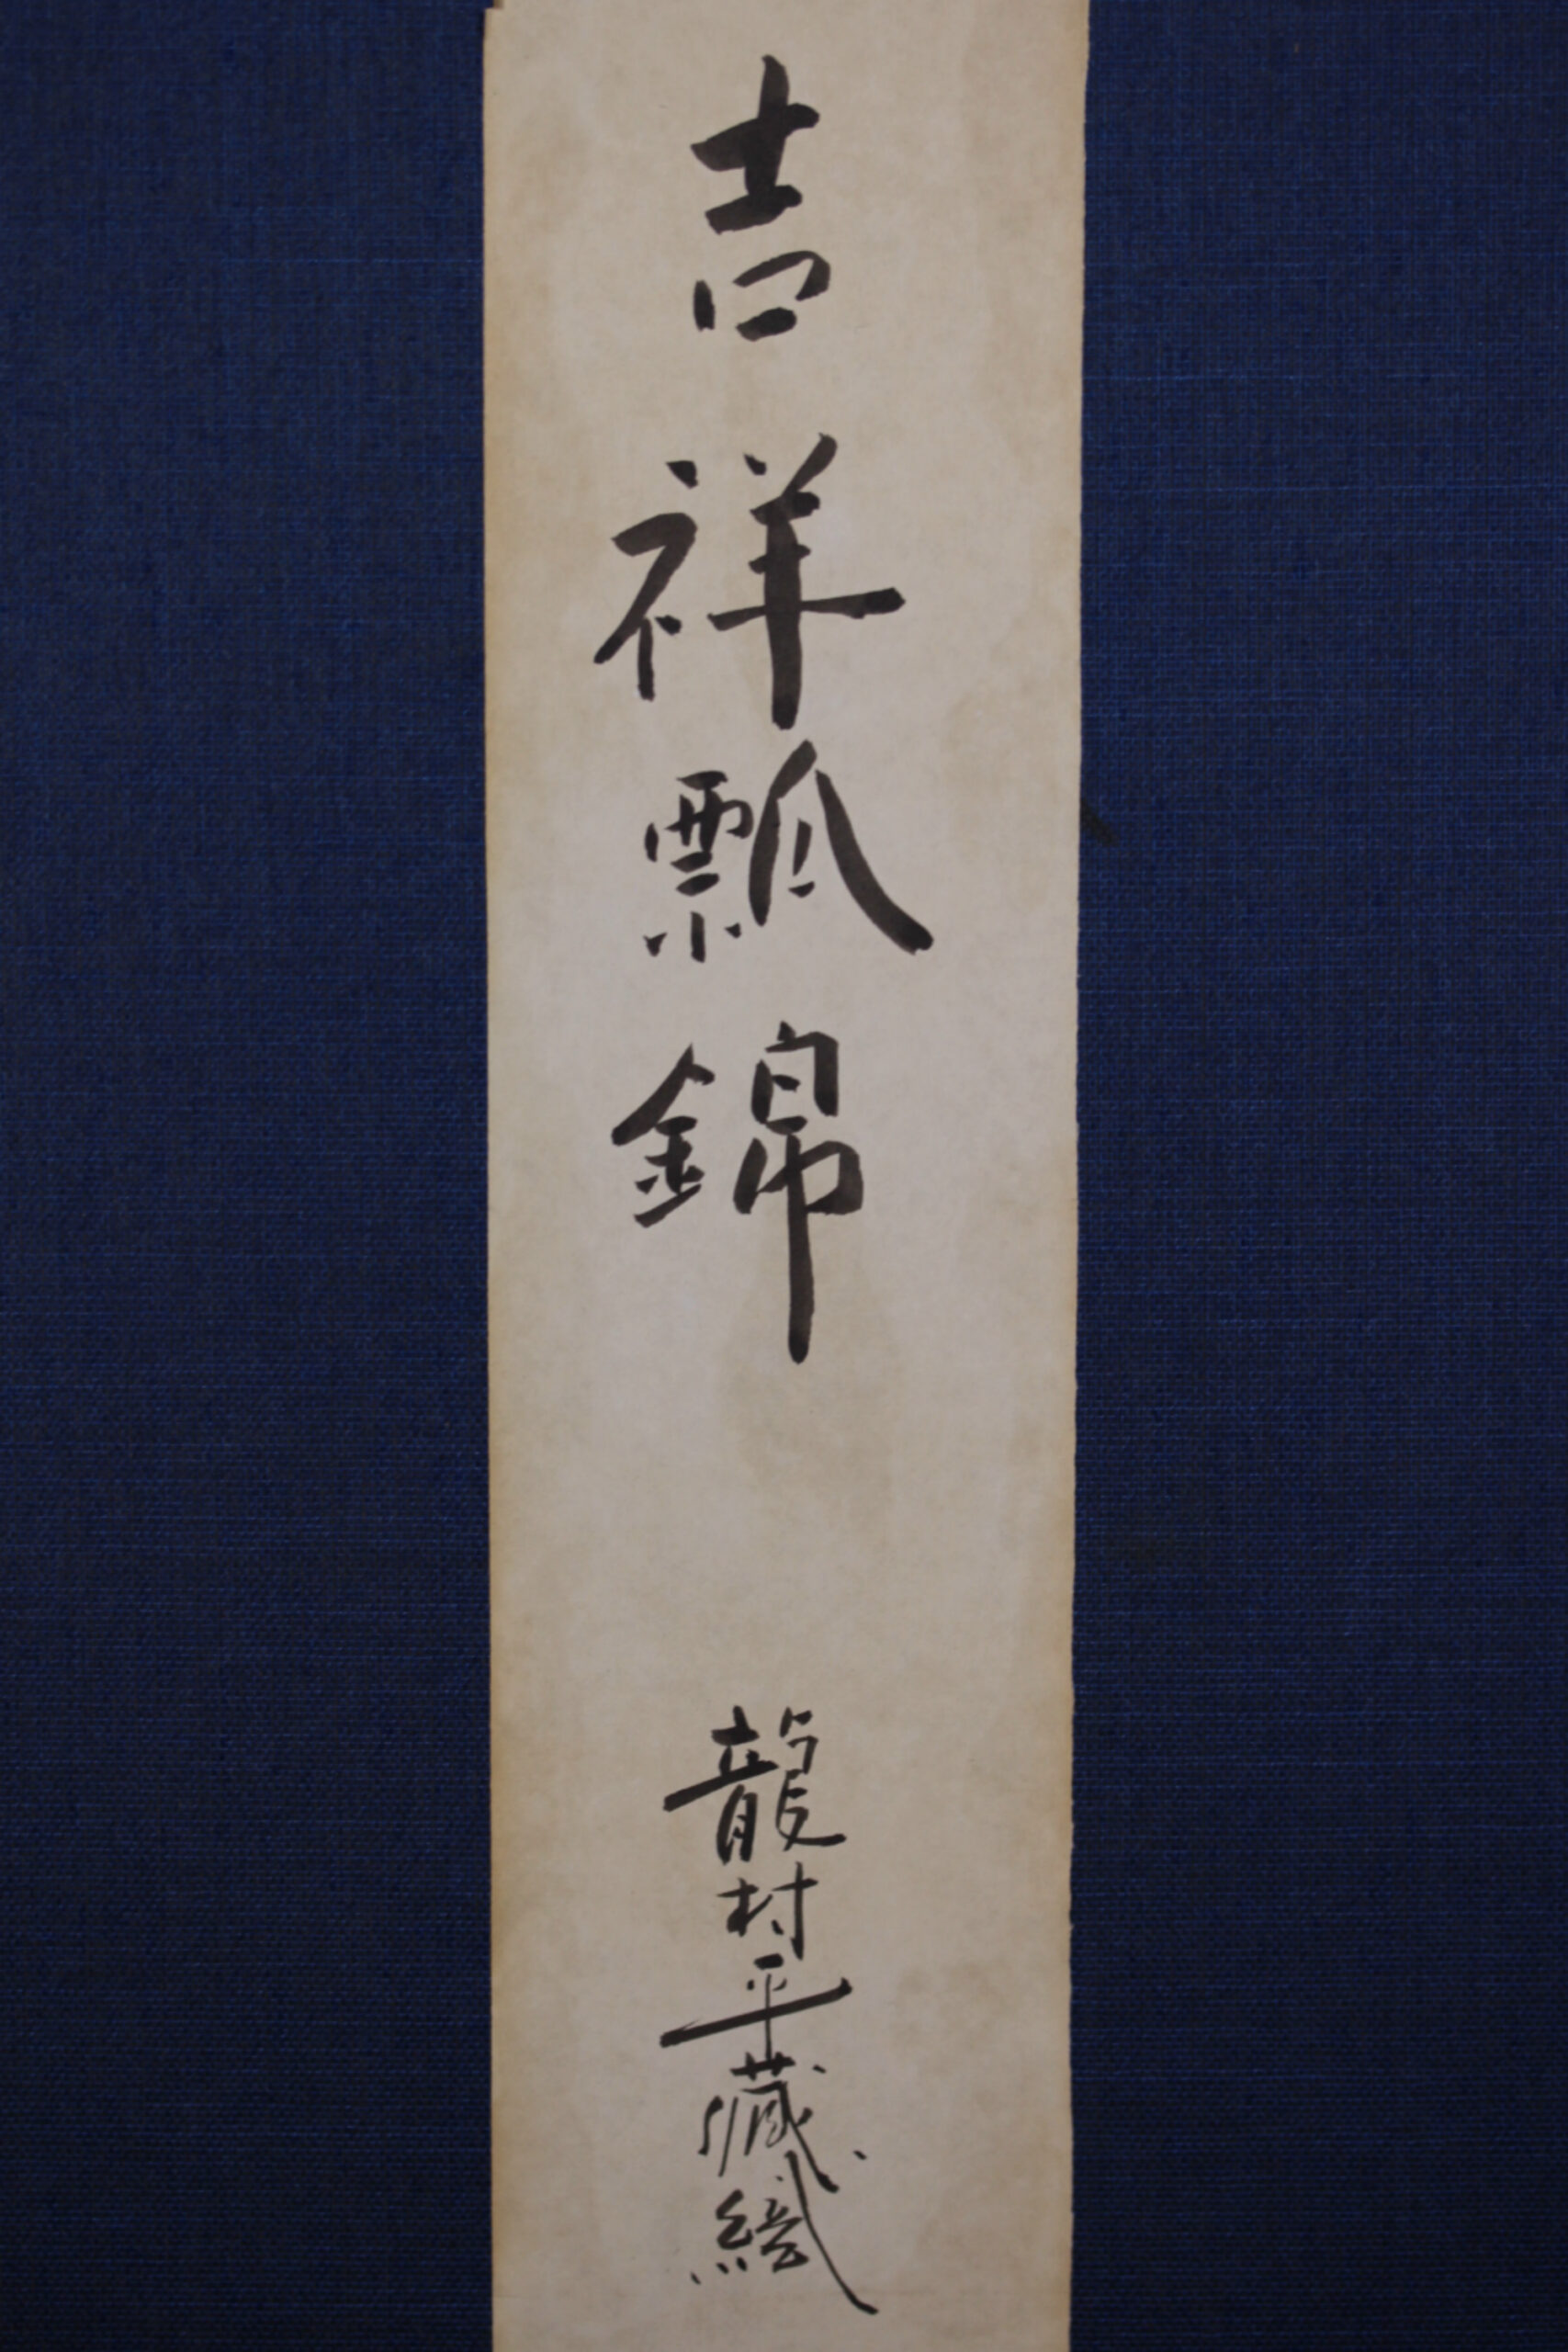 吉祥瓢錦
龍村平藏織